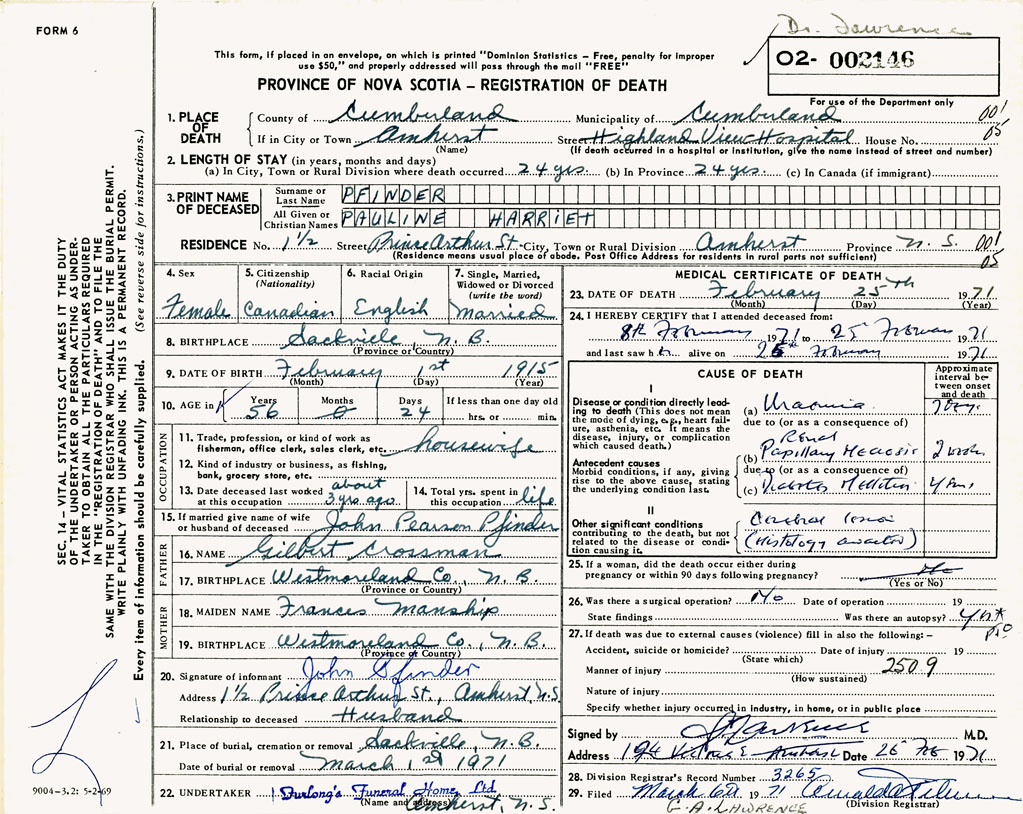 FORM 6
Dr. Lawrence
This form, if placed in an envelope, on which is printed "Dominion Statistics – Free, penalty for improper
use $50," and properly addressed will pass through the mail "FREE"
02- 002146
PROVINCE OF NOVA SCOTIA – REGISTRATION OF DEATH
For use of the Department only
1. PLACE OF DEATH
County of Cumberland Municipality of Cumberland 001
If in City or Town Amherst Street Highland View Hospital House No. 05
(Name) (If death occurred in a hospital or institution, give the name instead of street and number)
2. LENGTH OF STAY (in years, months and days)
(a) In City, Town or Rural Division where death occurred 24 yrs. (b) In Province 24 yrs. (c) In Canada (if immigrant)
3. PRINT NAME OF DECEASED
Surname or Last Name PFINDER
All Given or Christian Names PAULINE HARRIET
RESIDENCE No. 1 1/2 Street Prince Arthur St. City, Town or Rural Division Amherst Province N. S. 001
(Residence means usual place of abode. Post Office Address for residents in rural parts not sufficient) 05
4. Sex
Female
5. Citizenship (Nationality)
Canadian
6. Racial Origin
English
7. Single, Married, Widowed or Divorced (write the word)
Married
8. BIRTHPLACE Sackville, N. B.
(Province or Country)
9. DATE OF BIRTH February 1st 1915
(Month) (Day) (Year)
10. AGE in
Years Months Days If less than one day old
56 0 24 hrs. or min.
OCCUPATION
11. Trade, profession, or kind of work as
fisherman, office clerk, sales clerk, etc. housewife
12. Kind of industry or business, as fishing,
bank, grocery store, etc.
13. Date deceased last worked at this occupation about 3 yrs. ago.
14. Total yrs. spent in this occupation life
15. If married give name of wife
or husband of deceased John Pearson Pfinder
FATHER
16. NAME Gilbert Crossman
17. BIRTHPLACE Westmoreland Co., N. B.
(Province or Country)
MOTHER
18. MAIDEN NAME Frances Manship
19. BIRTHPLACE Westmoreland Co., N. B.
(Province or Country)
20. Signature of informant John Pfinder
Address 1 1/2 Prince Arthur St., Amherst, N.S.
Relationship to deceased Husband
21. Place of burial, cremation or removal Sackville, N. B.
Date of burial or removal March 1st 1971
22. UNDERTAKER Furlong's Funeral Home, Ltd
(Name and address) Amherst, N. S.
MEDICAL CERTIFICATE OF DEATH
23. DATE OF DEATH February 25th 1971
(Month) (Day) (Year)
24. I HEREBY CERTIFY that I attended deceased from:
8th February 1971 to 25 1971
and last saw h alive on February 1971
CAUSE OF DEATH
Approximate interval between onset and death
I
Disease or condition directly leading to death (This does not mean the mode of dying, e.g., heart failure, asthenia, etc. It means the disease, injury, or complication which caused death.)
(a) Uraemia
due to (or as a consequence of)
Renal
(b) Papillary Necrosis 2
Antecedent causes
Morbid conditions, if any, giving rise to the above cause, stating the underlying condition last.
due to (or as a consequence of)
(c) Diabetes Mellitus
II
Other significant conditions
contributing to the death, but not related to the disease or condition causing it.
Cerebral
(Histology
25. If a woman, did the death occur either during
pregnancy or within 90 days following pregnancy? No
(Yes or No)
26. Was there a surgical operation? No Date of operation 19
State findings Was there an autopsy?
27. If death was due to external causes (violence) fill in also the following:–
Accident, suicide or homicide? Date 19
(State which)
Manner of injury 2509
(How sustained)
Nature of injury
Specify whether injury occurred in industry, in home, or in public place
Signed by M.D.
Address 194 Victoria E Amherst Date 26 Feb 1971
28. Division Registrar's Record Number 3265
29. Filed March 6th 1971
(Division Registrar)
G. A. LAWRENCE
SEC. 14 – VITAL STATISTICS ACT MAKES IT THE DUTY
OF THE UNDERTAKER OR PERSON ACTING AS UNDER-
TAKER TO OBTAIN ALL THE PARTICULARS REQUIRED
IN THE "REGISTRATION OF DEATH" AND TO FILE THE
SAME WITH THE DIVISION REGISTRAR WHO SHALL ISSUE THE BURIAL PERMIT.
WRITE PLAINLY WITH UNFADING INK. THIS IS A PERMANENT RECORD.
Every item of information should be carefully supplied. (See reverse side for instructions.)
9004-3.2: 5-2-69